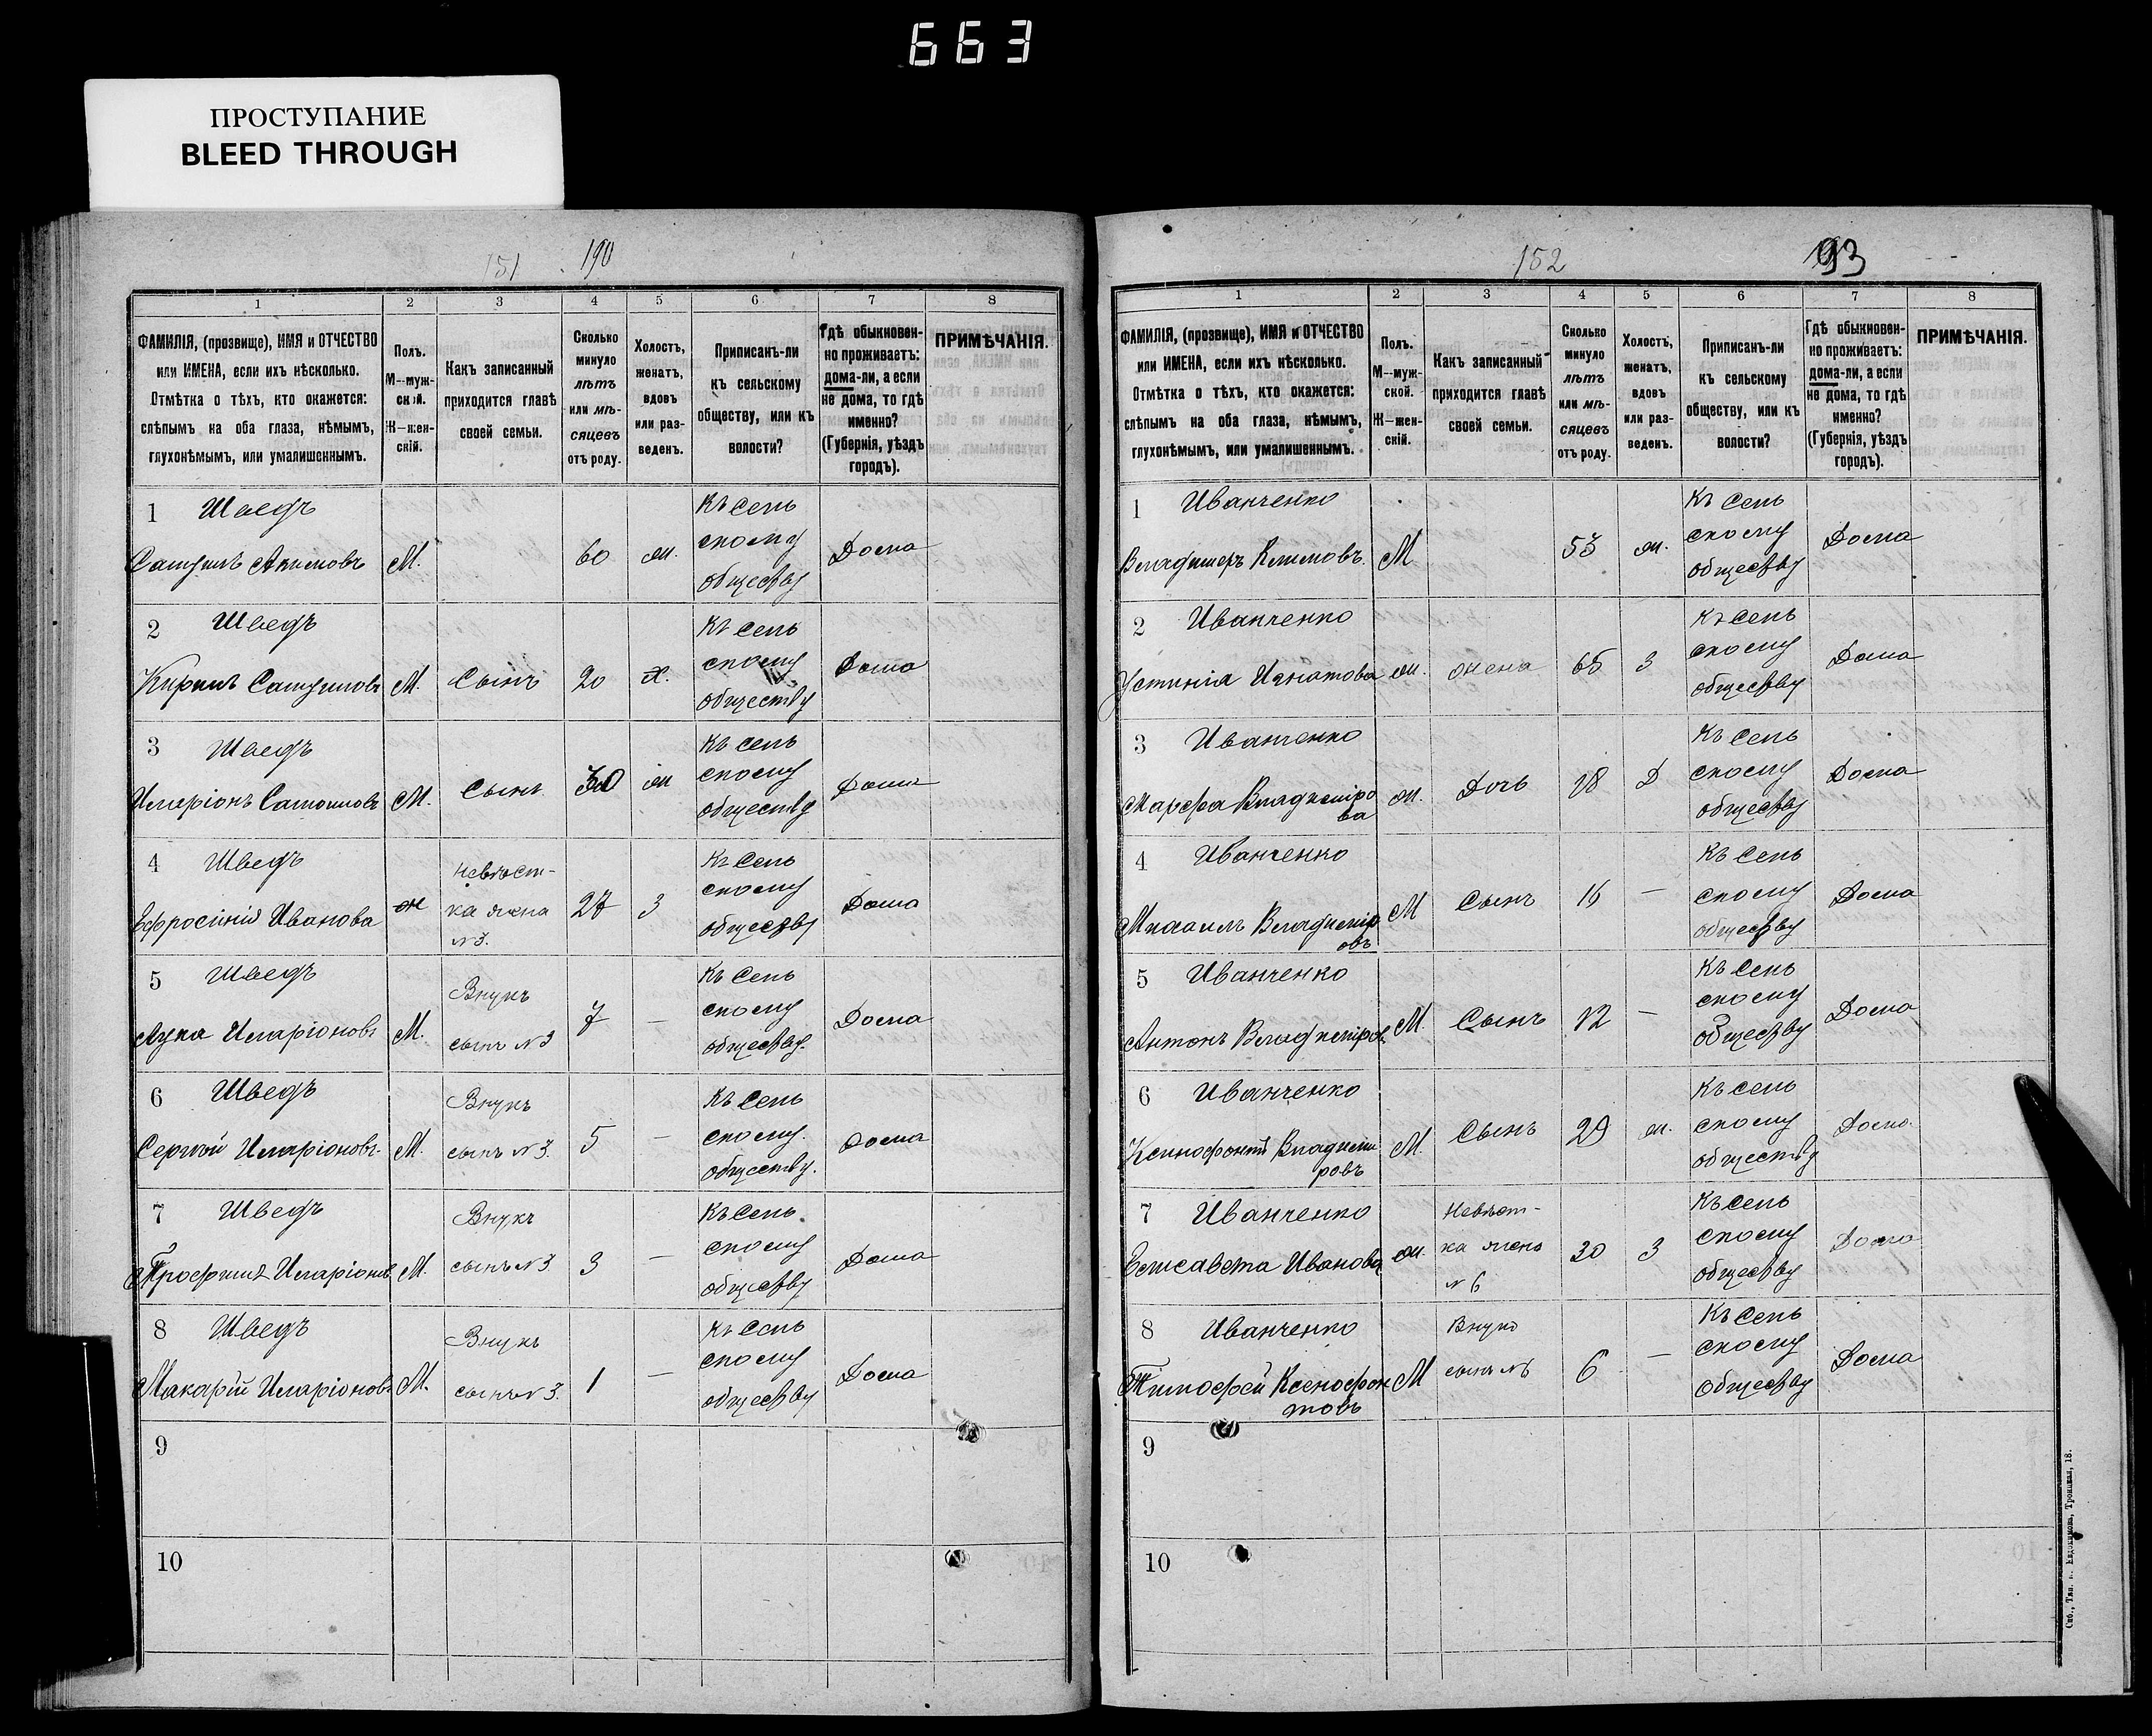 663
ПРОСТУПАНИЕ
BLEED THROUGH
151 190
1 2 3 4 5 6 7 8
ФАМИЛІЯ, (прозвище), ИМЯ и ОТЧЕСТВО
или ИМЕНА, если ихъ нѣсколько.
Отмѣтка о тѣхъ, кто окажется:
слѣпымъ на оба глаза, нѣмымъ,
глухонѣмымъ, или умалишеннымъ.
Полъ.
М—муж-
ской.
Ж—жен-
скій.
Какъ записанный
приходится главѣ
своей семьи.
Сколько
минуло
лѣтъ
или мѣ-
сяцевъ
отъ роду.
Холостъ,
женатъ,
вдовъ
или раз-
веденъ.
Приписанъ-ли
къ сельскому
обществу, или къ
волости?
Гдѣ обыкновен-
но проживаетъ:
дома-ли, а если
не дома, то гдѣ
именно?
(Губернія, уѣздъ
городъ).
ПРИМѢЧАНІЯ.
1 Шведъ
Самуилъ Акимовъ М. 60 ж. Къ сель
скому
обществу Дома
2 Шведъ
Кирилъ Самуиловъ М. Сынъ 20 х. Къ сель
скому
обществу Дома
3 Шведъ
Иларіонъ Самоиловъ М. Сынъ 30 ж Къ сель
скому
обществу Дома
4 Шведъ
Ефросинія Иванова ж Невѣст-
ка жена
№3. 27 З Къ сель
скому
обществу Дома
5 Шведъ
Лука Иларіоновъ М. Внукъ
сынъ №3 7 — Къ сель
скому
обществу. Дома
6 Шведъ
Сергѣй Иларіоновъ. М. Внукъ
сынъ №3. 5 — Къ сель
скому.
обществу. Дома
7 Шведъ
Трофимъ Иларіонов М. Внукъ
сынъ №3 3 — Къ сель
скому
обществу Дома
8 Шведъ
Макарій Иларіоновъ М. Внукъ
сынъ №3. 1 — Къ сель
скому
обществу Дома
9
10
152 193
1 2 3 4 5 6 7 8
ФАМИЛІЯ, (прозвище), ИМЯ и ОТЧЕСТВО
или ИМЕНА, если ихъ нѣсколько.
Отмѣтка о тѣхъ, кто окажется:
слѣпымъ на оба глаза, нѣмымъ,
глухонѣмымъ, или умалишеннымъ.
Полъ.
М—муж-
ской.
Ж—жен-
скій.
Какъ записанный
приходится главѣ
своей семьи.
Сколько
минуло
лѣтъ
или мѣ-
сяцевъ
отъ роду.
Холостъ,
женатъ,
вдовъ
или раз-
веденъ.
Приписанъ-ли
къ сельскому
обществу, или къ
волости?
Гдѣ обыкновен-
но проживаетъ:
дома-ли, а если
не дома, то гдѣ
именно?
(Губернія, уѣздъ
городъ).
ПРИМѢЧАНІЯ.
1 Иванченко
Владимеръ Климовъ. М 53 ж. Къ сель
скому
обществу Дома
2 Иванченко
Устинія Игнатова ж. жена 65 З Къ сель
скому
обществу Дома
3 Иванченко
Марфа Владиміро
ва ж. Дочь 18 Д Къ сель
скому
обществу Дома
4 Иванченко
Михаилъ Владимір
овъ М Сынъ 16 — Къ сель
скому
обществу Дома
5 Иванченко
Антонъ Владиміров. М. Сынъ 12 — Къ сель
скому
обществу Дома
6 Иванченко
Ксинофонтъ Владими
ровъ М. Сынъ 29 ж. Къ сель
скому
обществу Дома
7 Иванченко
Елисавета Иванова ж. Невѣст-
ка жена
№6 30 З Къ сель
скому
обществу Дома
8 Иванченко
Тимофей Ксенофон
товъ М Внукъ
сынъ №6 6 — Къ сель
скому
обществу Дома
9
10